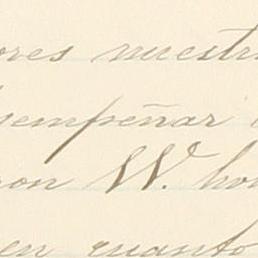 ores nuestr
sempeñar
ron W. ho
en cuanto